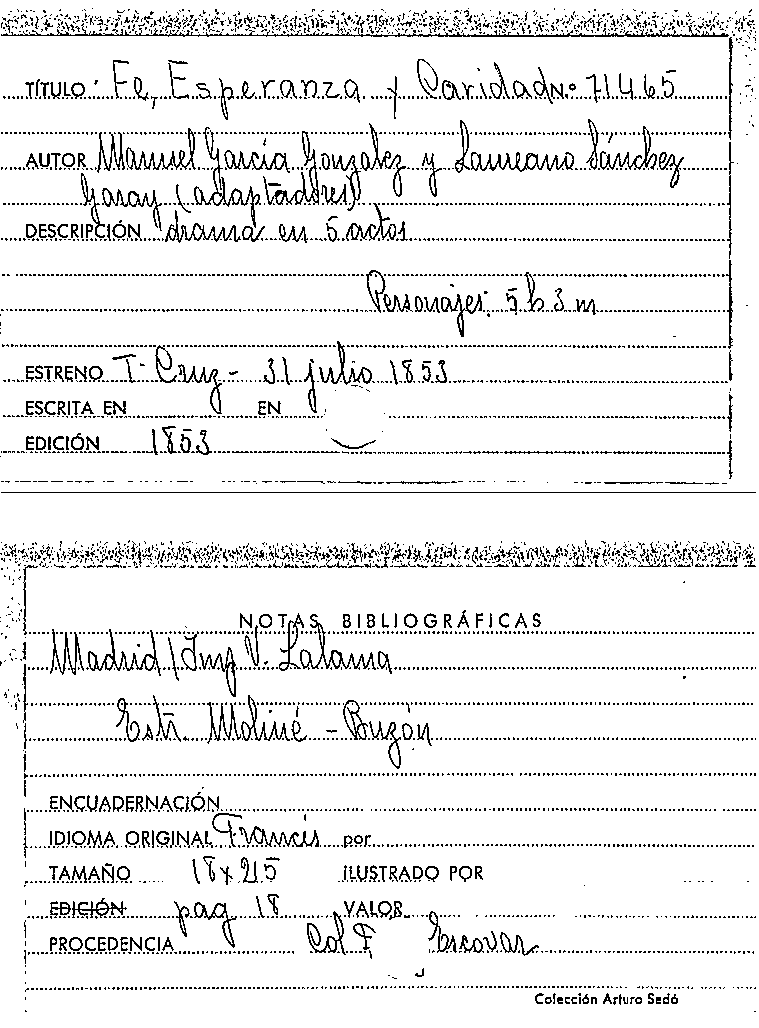 TÍTULO Fe, Esperanza y Caridad Nº 71465
AUTOR Manuel García Gonzalez y Laureano Sánchez
Garay (adaptadores)
DESCRIPCIÓN drama en 5 actos
Personajes: 5 h 3 m
ESTRENO T. Cruz - 31 julio 1853
ESCRITA EN EN
EDICIÓN 1853
NOTAS BIBLIOGRÁFICAS
Madrid / Imp V. Lalama
Estr. Moliné - Buzón
ENCUADERNACIÓN
IDIOMA ORIGINAL Francés por
TAMAÑO 18 x 215 ILUSTRADO POR
EDICIÓN pag 18 VALOR
PROCEDENCIA Col F. Escovar
Colección Arturo Sedó